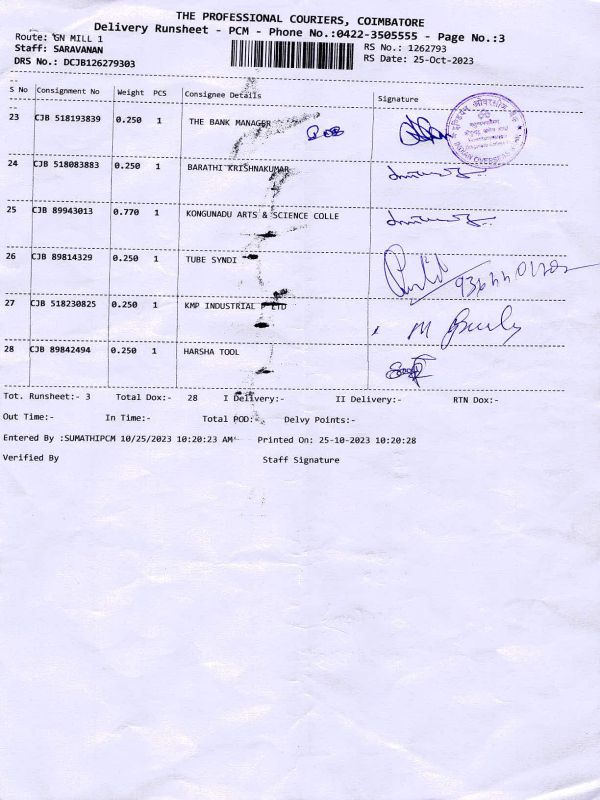 THE PROFESSIONAL COURIERS, COIMBATORE
Delivery Runsheet - PCM - Phone No.:0422-3505555 - Page No.:3
Route: GN MILL 1 RS No.: 1262793
Staff: SARAVANAN RS Date: 25-Oct-2023
DRS No.: DCJB126279303
S No Consignment No Weight PCS Consignee Details Signature
23 CJB 518193839 0.250 1 THE BANK MANAGER
24 CJB 518083883 0.250 1 BARATHI KRISHNAKUMAR
25 CJB 89943013 0.770 1 KONGUNADU ARTS & SCIENCE COLLE
26 CJB 89814329 0.250 1 TUBE SYNDI
27 CJB 518230825 0.250 1 KMP INDUSTRIAL P LTD
28 CJB 89842494 0.250 1 HARSHA TOOL
Tot. Runsheet:- 3 Total Dox:- 28 I Delivery:- II Delivery:- RTN Dox:-
Out Time:- In Time:- Total POD:- Delvy Points:-
Entered By :SUMATHIPCM 10/25/2023 10:20:23 AM Printed On: 25-10-2023 10:20:28
Verified By Staff Signature